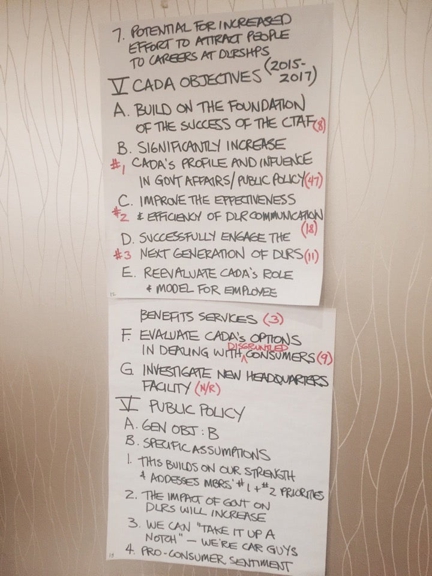 7. POTENTIAL FOR INCREASED
EFFORT TO ATTRACT PEOPLE
TO CAREERS AT DLRSHPS
V CADA OBJECTIVES (2015-
2017)
A. BUILD ON THE FOUNDATION
OF THE SUCCESS OF THE CTAF (8)
B. SIGNIFICANTLY INCREASE
#1 CADA'S PROFILE AND INFUENCE
IN GOVT AFFAIRS/PUBLIC POLICY (47)
C. IMPROVE THE EFFECTIVENESS
#2 & EFFICIENCY OF DLR COMMUNICATION
(18)
D. SUCCESSFULLY ENGAGE THE
#3 NEXT GENERATION OF DLRS (11)
E. REEVALUATE CADA'S ROLE
& MODEL FOR EMPLOYEE
BENEFITS SERVICES (3)
F. EVALUATE CADA'S OPTIONS
DISGRUNTLED
IN DEALING WITH CONSUMERS (9)
G INVESTIGATE NEW HEADQUARTERS
FACILITY (N/R)
V PUBLIC POLICY
A. GEN OBJ: B
B. SPECIFIC ASSUMPTIONS
1. THIS BUILDS ON OUR STRENGTH
& ADDESSES MBRS' #1 + #2 PRIORITIES
2. THE IMPACT OF GOVT ON
DLRS WILL INCREASE
3. WE CAN "TAKE IT UP A
NOTCH" - WE'RE CAR GUYS
4. PRO-CONSUMER SENTIMENT